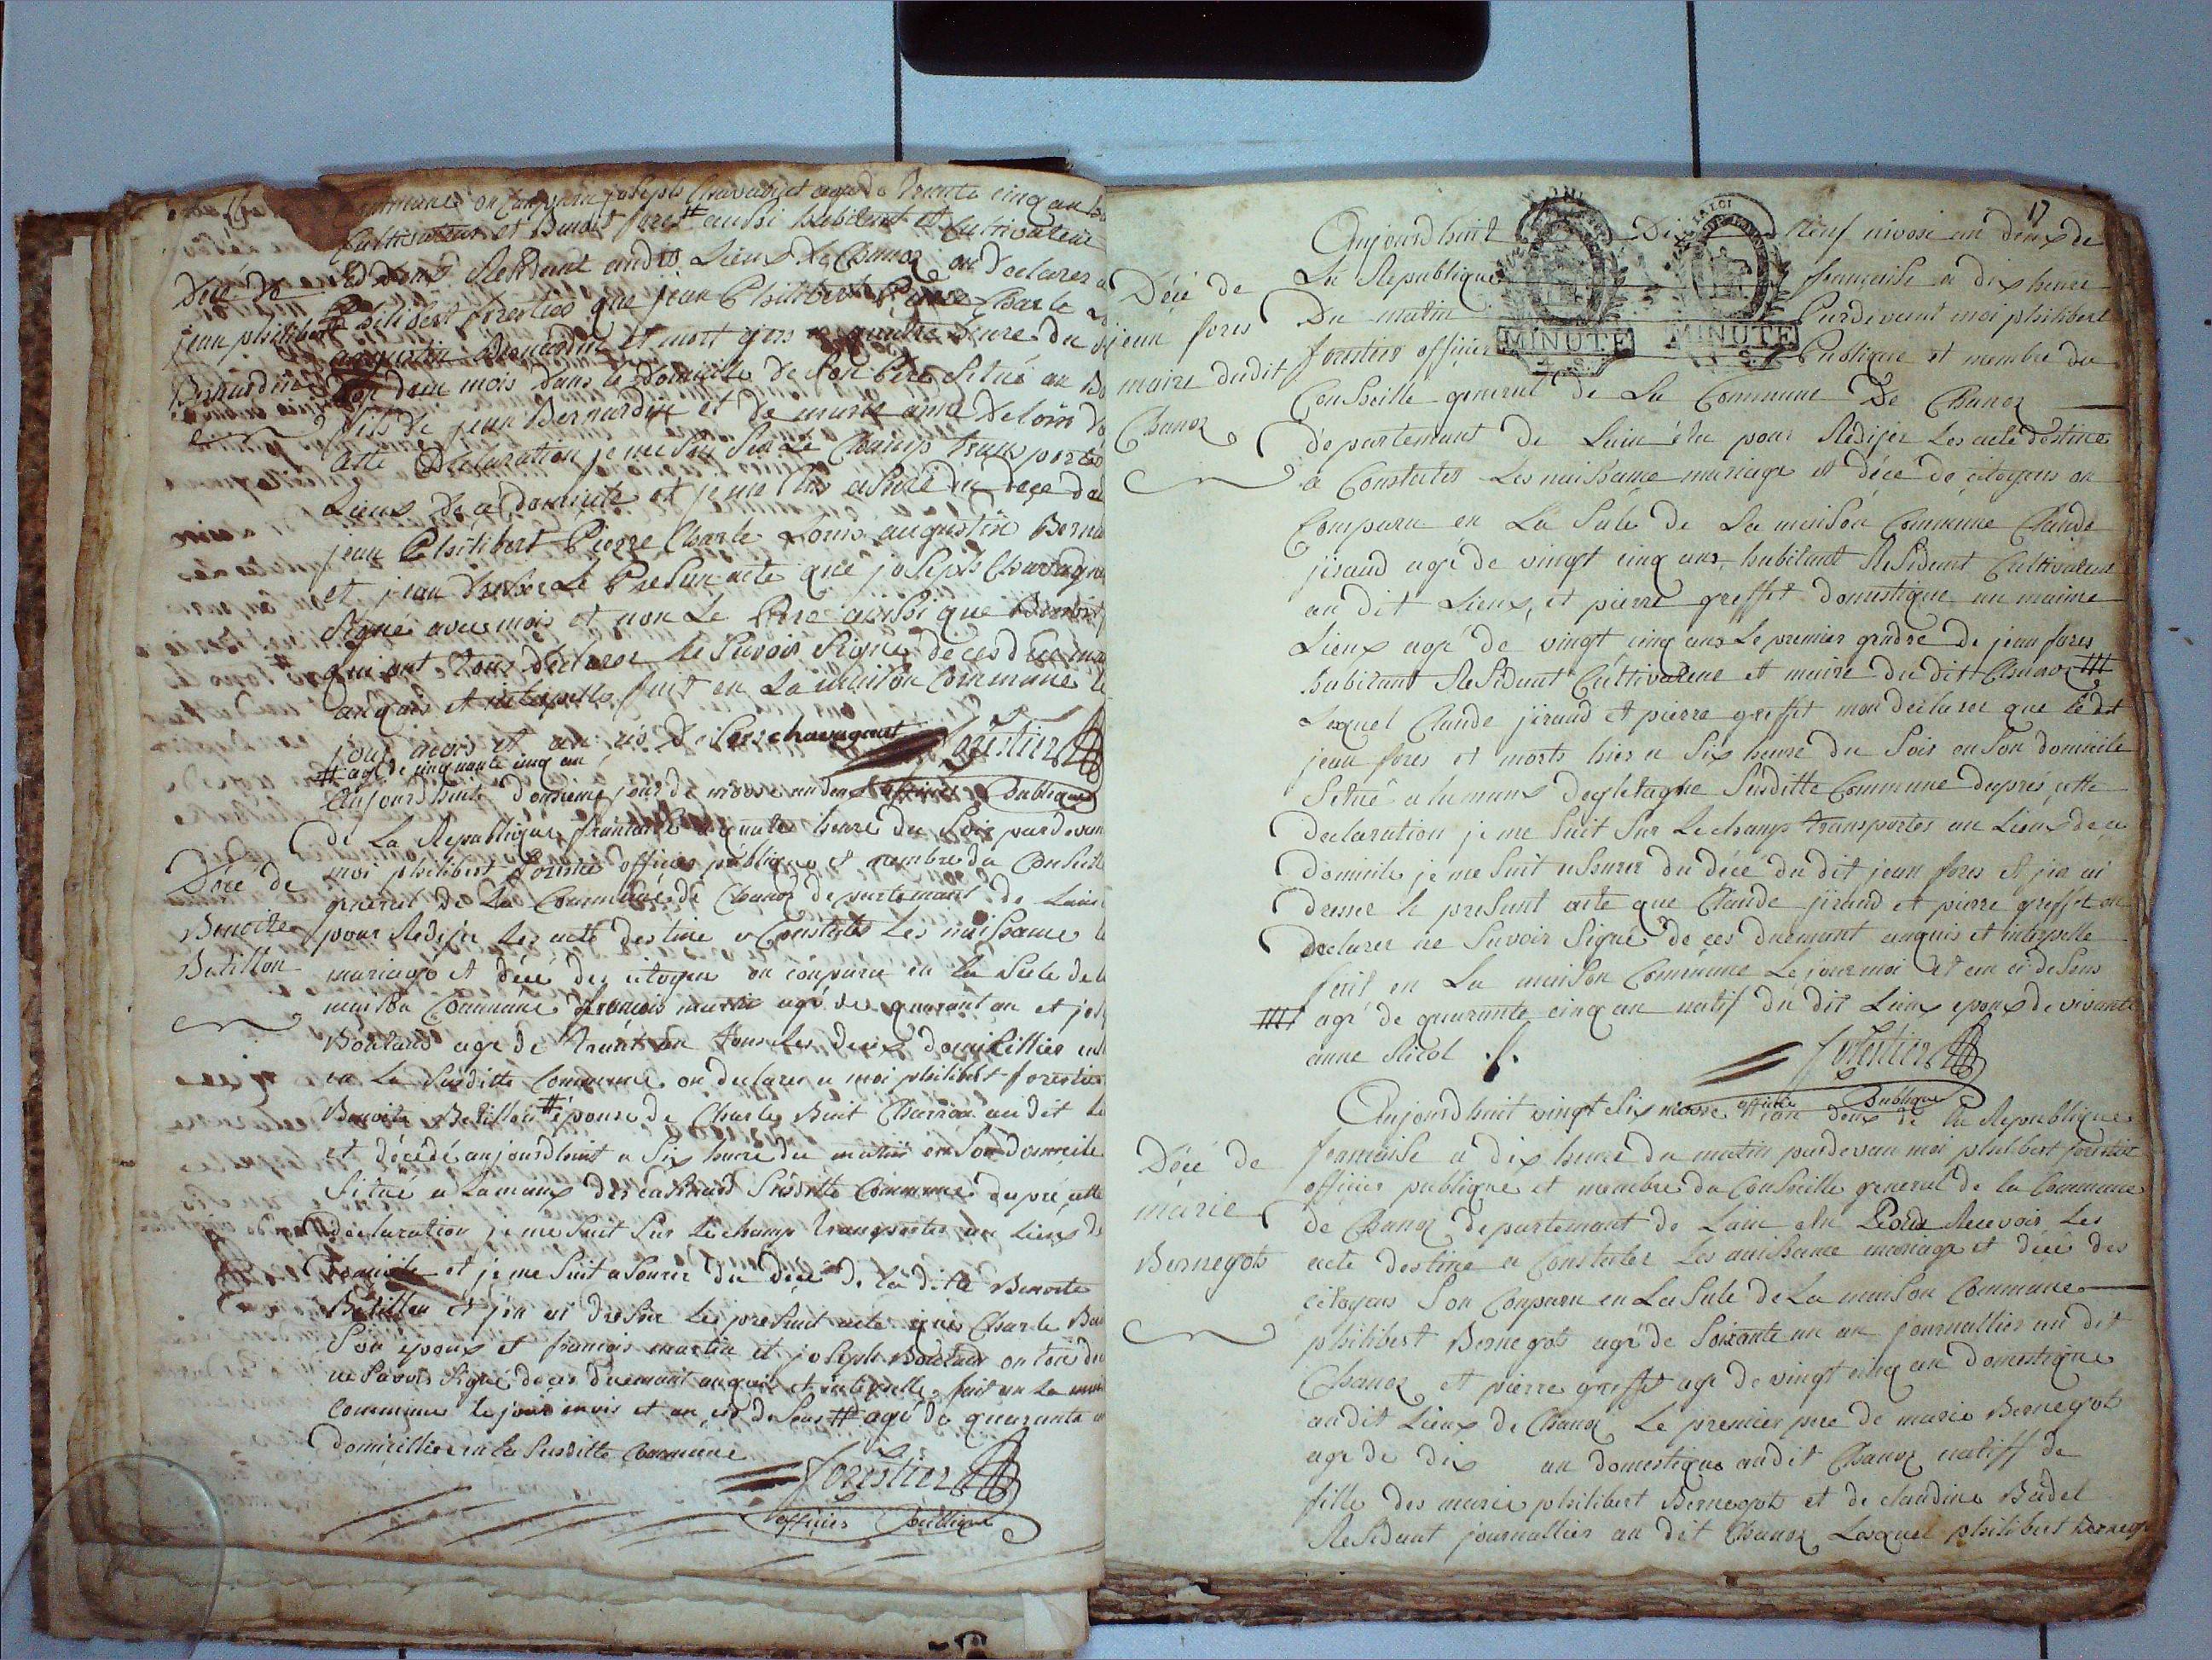 commune on comparu joseph Chavagnet agé de trante cinq an
Cultivateur et Benoit fores # aussi habitant et Cultivateur
Décé de
jean philibert
Bernardin
Les deux Residant audit Lieux de Chanoz on declarer a
Philibert forestier que jean Philibert Pierre Charle
augustin Bernardin et mort yers a quatre heure du
agé deux mois dans le domicille de son Pere Situé au
fils de jean Bernardin et de marie anne Deloin
cette Declaration je me suis sur Le Champ transporté
Lieux de ce domicile et je me suis assuré du decé de
jean Philibert Pierre Charle Louis augustin Berna
et jean dresser Le Presun acte que joseph Chavagn
Signé avec moi et non Le Pere aussi que Benoit
qui ont tous declarer ne Savoir Signé de ces duemant
anquis et interpelle fait en La maison Commune le
jour mois et an cis desus chavagnet forestier
# agé de cinquante cinq an
officier Publique
Décé de
Benoite
Betillon
Aujourdhuit douzieme jour de nivose an deux
de La Republique francaise a quatre heure du Soir pardevan
moi philibert forestier officier publique et membre du Conseille
general de La Commune de Chanoz departemant de Lain
pour Redijer Les acte destine a Constater Les naissance
mariage et décé des citoyen on comparu en La Sale de la
maison Commune francois martin agé de quarant an et jos
Boulaud agé de trant an tous Les deux domicillier
en La Susditte Commune on declarer a moi philibert forestier
Benoite Betillon # épouse de Charle Buit Charron au dit
et décédé aujourdhuit a Six heure du matin en Son domicile
Situé a Lamaux des Susditte Commune dapré cette
declaration je me Suit Sur Le champ transporter au Lieux de
domicile et je me Suit asourer du décé de la ditte Benoite
Betillon et jen ai dressér Le presant acte que Charle
Son epoux et francois martin et joseph Boulaud on tous
ne Savoir Signé de ces duemant anquis et interpelle fait en La
Commune le jour mois et an cis desus # agé de quarante
domicillier en la Susditte Commune
forestier
officier Publique
17
MINUTE MINUTE
Décé de
jean fores
maire dudit
Chanoz
Aujourdhuit Dix neuf nivose an deux de
La Republique francaise a dix heure
Du matin Pardevant moi philibert
forestier officier Publique et membre du
Conseille general de La Commune De Chanoz
departemant de Lain élu pour Redijer Les acte destine
a Constater Les naissance mariage et décé de citoyens on
Comparu en La Sale de La maison Commune Claude
jiraud agé de vingt cinq ans habitant Residant Cultivateur
au dit Lieux, et pierre greffet domestique au maime
Lieux agé de vingt cinq ans Le premier gendre de jean fores
habitant Residant Cultivateur et maire du dit Chanoz
Lesquel Claude jiraud et pierre greffet mon declarer que ledit
jean fores et morts hier a Six heure du Soir en Son domicile
Situé a lamaux Susditte Commune daprés cette
declaration je me Suit Sur Le champ transporter au Lieux de ce
domicile je me Suit assurer du décé du dit jean fores et jen ai
dresser le presant acte que Claude jiraud et pierre greffet on
declarer ne Savoir Signé de ces duemant anquis et interpelle
fait en La maison Commune Le jour moi et an ci desus
agé de quarante cinq an natif du dit Lieux epoux de vivante
anne Nicol
forestier
officier Publique
Décé de
marie
Bernegots
Aujourdhuit vingt Six nivose an deux de la Republique
francaise a dix heure du matin pardevan moi philibert forestier
officier publique et membre du Conseille general de la Commune
de Chanoz departemant de Lain elu Pour Recevoir Les
acte destine a Constater Les naissance mariage et décé des
citoyens Son Comparu en La Sale de La maison Commune
philibert Bernegots agé de Soixante un an journallier au dit
Chanoz et pierre greffet agé de vingt cinq an domestique
audit Lieux de Chanoz Le premier pere de marie Bernegots
agé de dix an domestique audit Chanoz natiff de
fille des marie philibert Bernegots et de claudine Badel
Residant journallier au dit Chanoz Lesquel philibert Bernegots